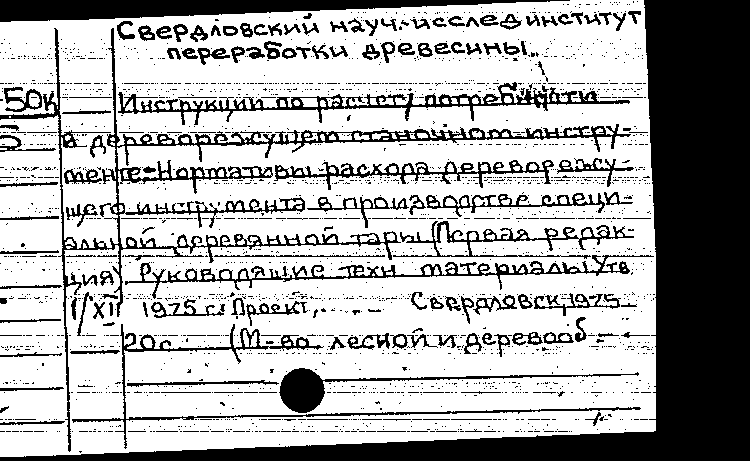 Свердловский науч.-исслед институт
переработки древесины.
50к Инструкции по расчету потребности
в дереворежущем станочном инстру-
менте. Нормативы расхода дереворежу-
щего инструмента в производстве специ-
альной деревянной тары (Первая редак-
ция) Руководящие техн материалы Утв
1/XII 1975 г. Проект, . . - . Свердловск, 1975
20 с (М-во лесной и деревооб.